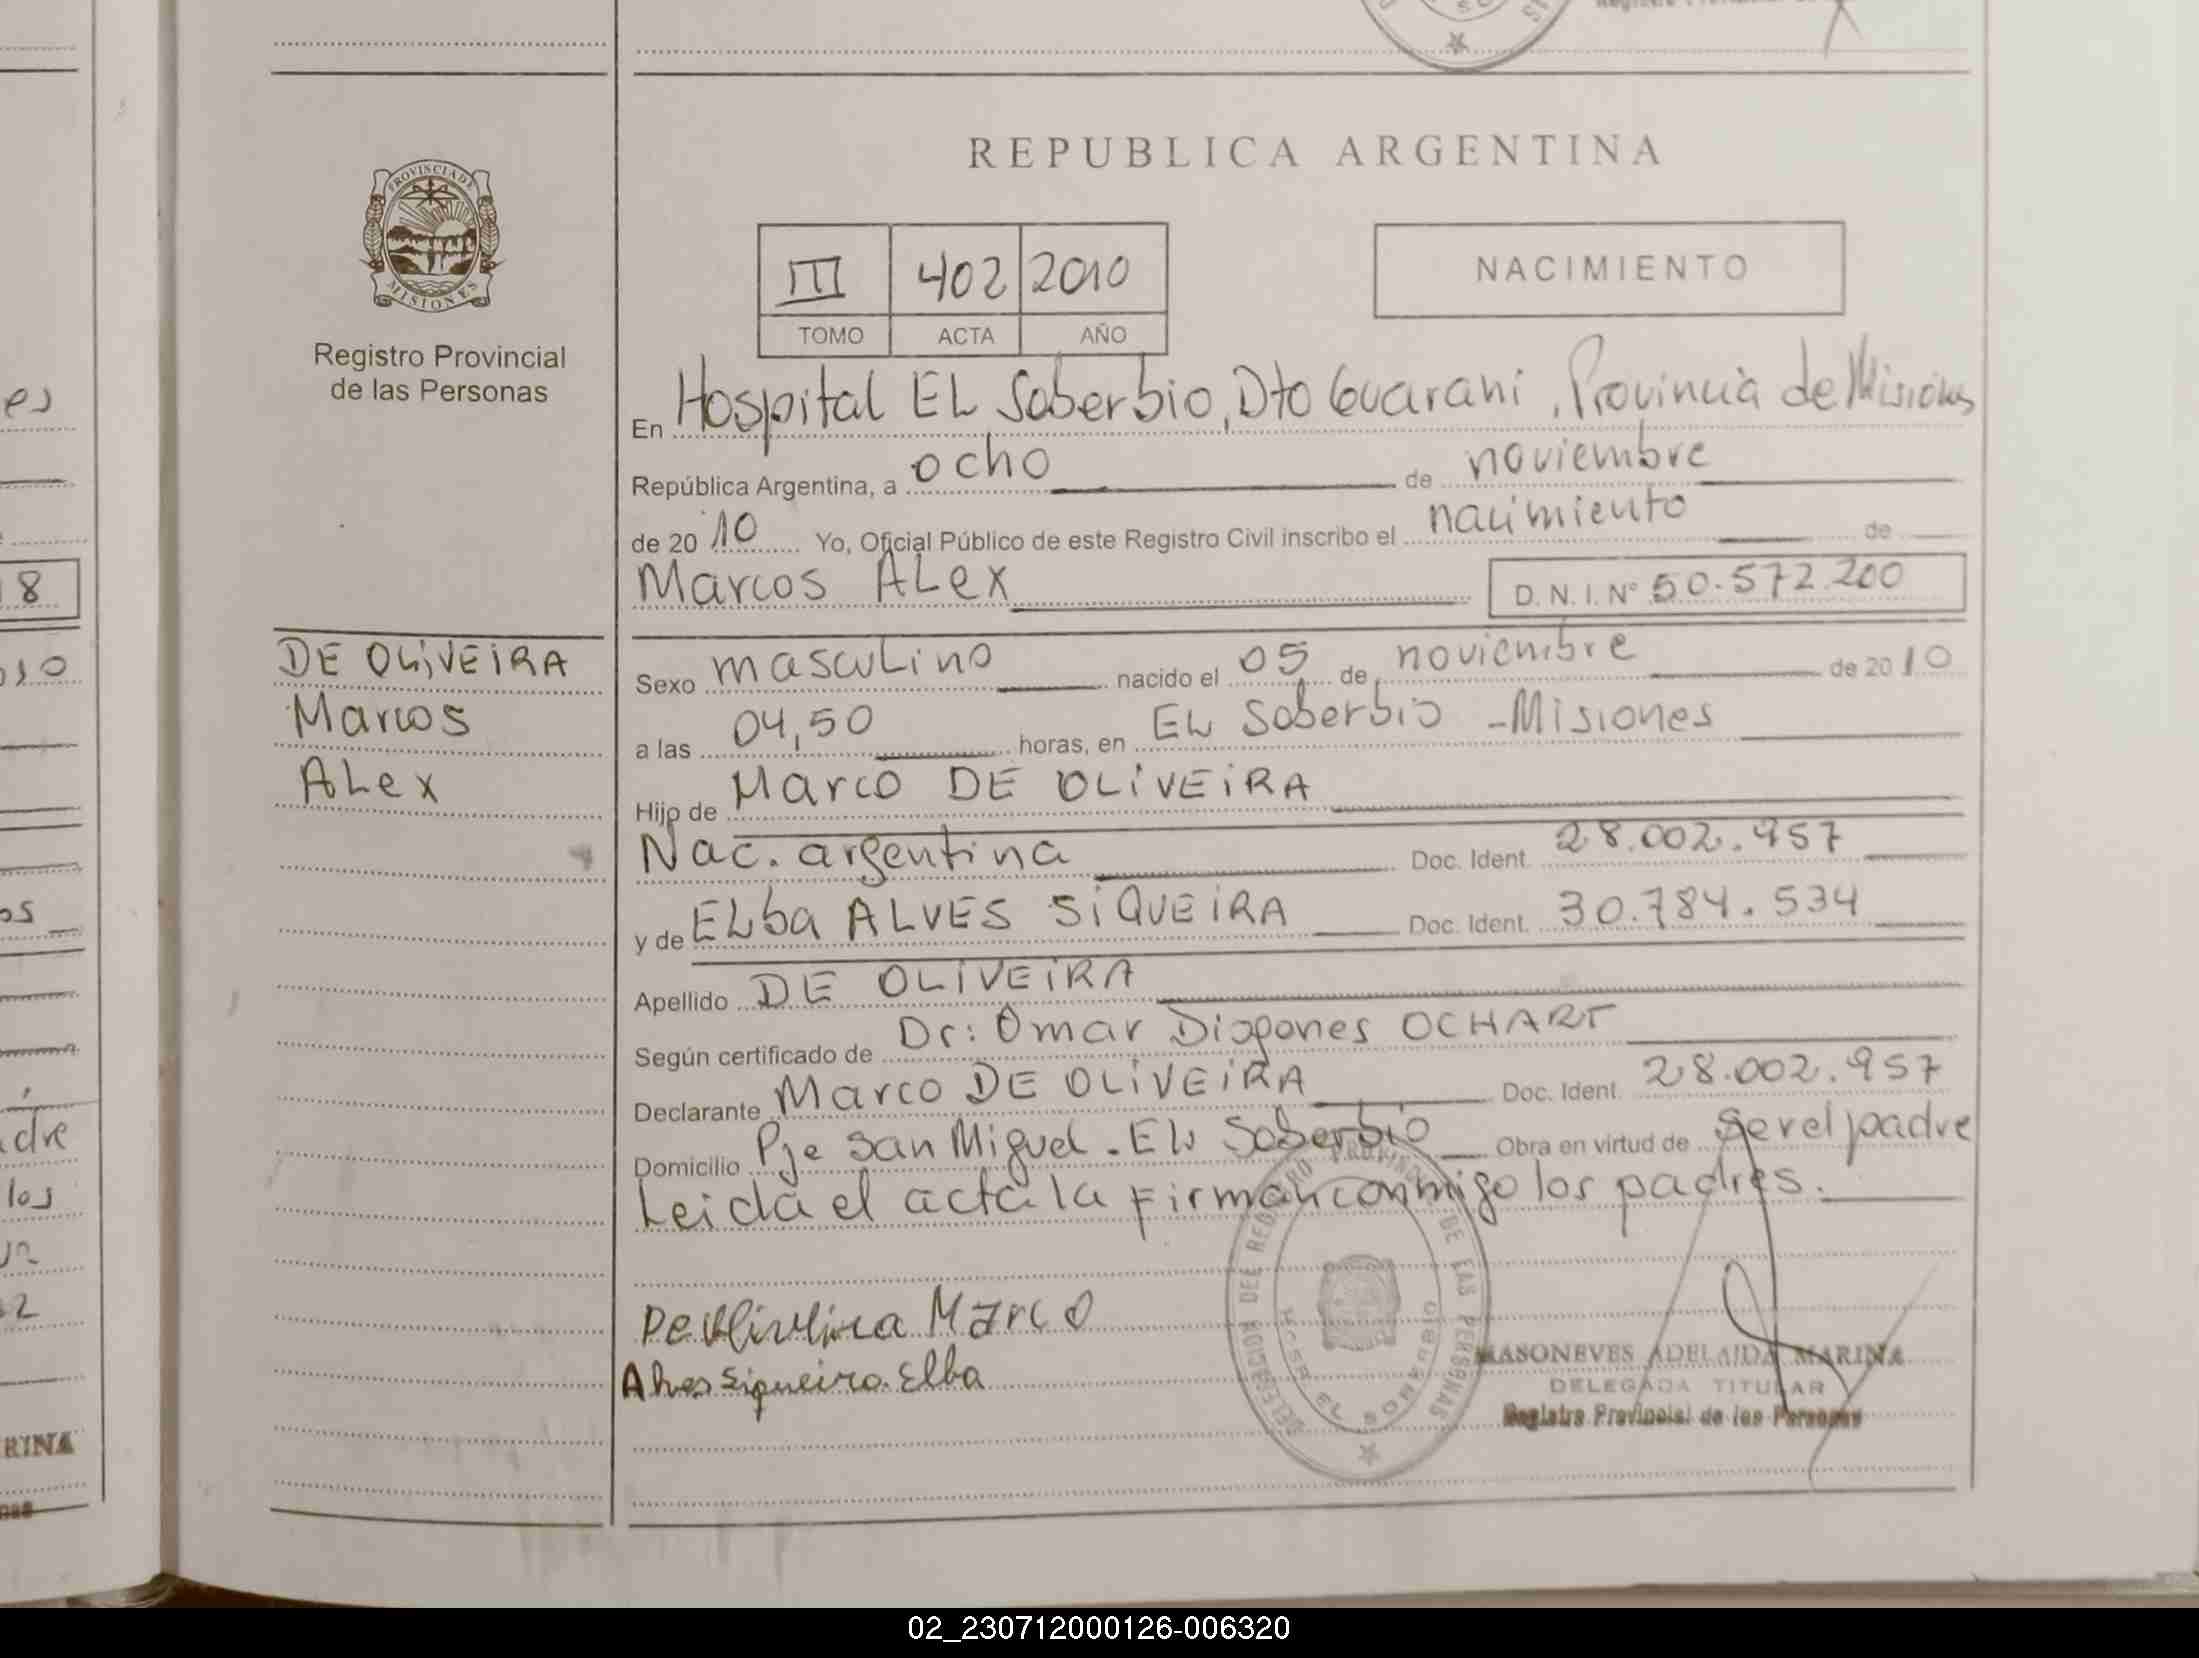 es
18
010
os
adre
los
RINA
REPUBLICA ARGENTINA
PROVINCIA DE
MISIONES
Registro Provincial
de las Personas
III 402 2010
TOMO ACTA AÑO
NACIMIENTO
En Hospital EL Soberbio, Dto Guarani, Provincia de Misiones
República Argentina, a ocho de noviembre
de 20 10 Yo, Oficial Público de este Registro Civil inscribo el nacimiento de
Marcos ALex D. N. I. Nº 50.572.200
DE OLIVEIRA
Marcos
ALex
Sexo mascuLino nacido el 05 de noviembre de 20 10
a las 04,50 horas, en EL Soberbio - Misiones
Hijo de Marco DE OLIVEIRA
Nac. argentina Doc. Ident. 28.002.957
y de ELba ALVES SIQUEIRA Doc. Ident. 30.784.534
Apellido DE OLIVEIRA
Según certificado de Dr: Omar Diogenes OCHART
Declarante Marco DE OLIVEIRA Doc. Ident. 28.002.957
Domicilio Pje San Miguel - EL Soberbio Obra en virtud de ser el padre
Leida el acta la Firman conmigo los padres.
DELEGACION DEL REGISTRO PROVINCIAL DE LAS PERSONAS
EL SOBERBIO
Marco
Alves Siqueira Elba
MASONEVES ADELAIDA MARINA
DELEGADA TITULAR
Registro Provincial de las Personas
02_230712000126-006320